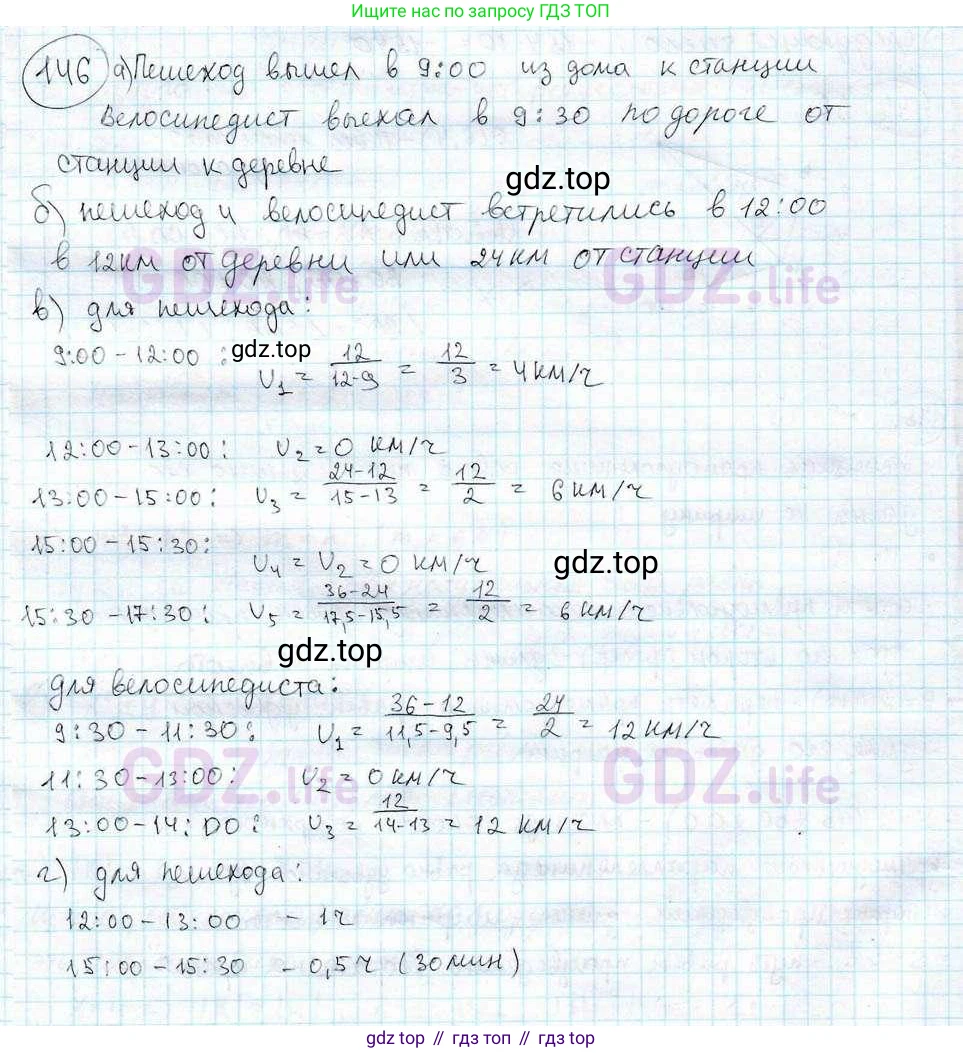 Ищите нас по запросу ГДЗ ТОП
146 а) Пешеход вышел в 9:00 из дома к станции
Велосипедист выехал в 9:30 по дороге от
станции к деревне
gdz.top
б) пешеход и велосипедист встретились в 12:00
в 12км от деревни или 24км от станции
GDZ.life GDZ.life
в) для пешехода:
9:00 - 12:00 : gdz.top U₁ = 12/(12-9) = 12/3 = 4км/ч
12:00 - 13:00 : U₂ = 0 км/ч
13:00 - 15:00 : U₃ = (24-12)/(15-13) = 12/2 = 6 км/ч
15:00 - 15:30 : U₄ = U₂ = 0 км/ч gdz.top
15:30 - 17:30 : U₅ = (36-24)/(17,5-15,5) = 12/2 = 6 км/ч
gdz.top
для велосипедиста:
9:30 - 11:30 : U₁ = (36-12)/(11,5-9,5) = 24/2 = 12 км/ч
11:30 - 13:00 : U₂ = 0 км/ч
GDZ.life GDZ.life
13:00 - 14:00 : U₃ = 12/(14-13) = 12 км/ч
г) для пешехода:
12:00 - 13:00 - 1ч
15:00 - 15:30 - 0,5ч (30 мин)
gdz.top // гдз топ // gdz top